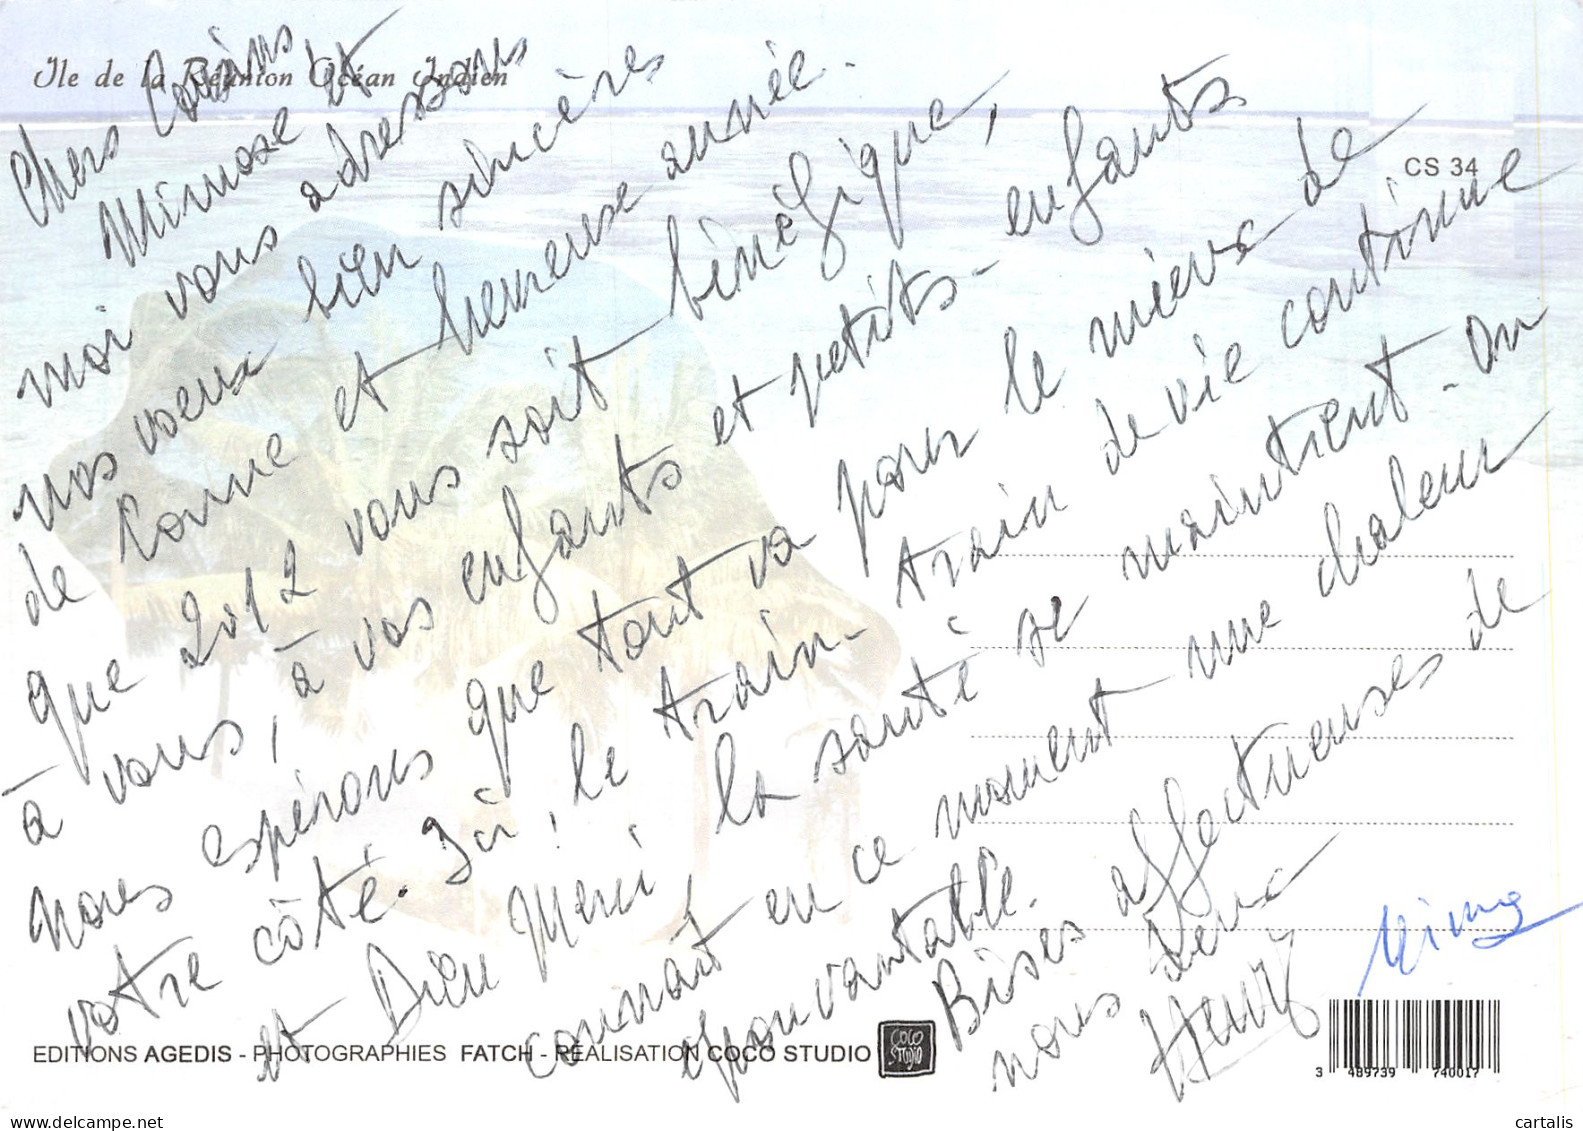 Ile de la Réunion Océan Indien
CS 34
Chers Cousins
Mimose et
moi vous adressons
nos voeux bien sincères
de bonne et heureuse année.
que 2012 vous soit bénéfique,
à vous, à vos enfants et petits-enfants
nous espérons que tout va pour le mieux de
votre côté. Ici, le train-train de vie continue
et Dieu Merci, la santé se maintient. On
connait en ce moment une chaleur
épouvantable.
Bises affectueuses de
nous deux
Henry
EDITIONS AGEDIS - PHOTOGRAPHIES FATCH - RÉALISATION COCO STUDIO
COCO STUDIO
3 489739 740017
cartalis
delcampe.net